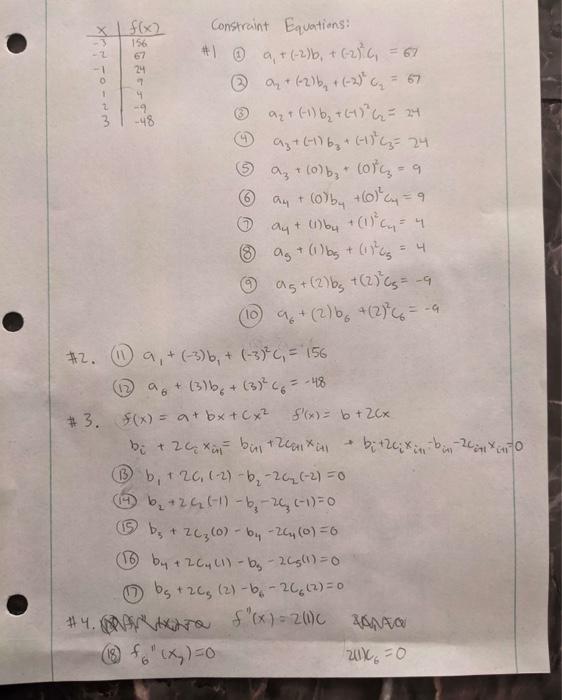 x | f(x)
-3 | 156
-2 | 67
-1 | 24
0 | 9
1 | 4
2 | -9
3 | -48
Constraint Equations:
#1 ① a₁ + (-2)b₁ + (-2)²c₁ = 67
② a₂ + (-2)b₂ + (-2)²c₂ = 67
③ a₂ + (-1)b₂ + (-1)²c₂ = 24
④ a₃ + (-1)b₃ + (-1)²c₃ = 24
⑤ a₃ + (0)b₃ + (0)²c₃ = 9
⑥ a₄ + (0)b₄ + (0)²c₄ = 9
⑦ a₄ + (1)b₄ + (1)²c₄ = 4
⑧ a₅ + (1)b₅ + (1)²c₅ = 4
⑨ a₅ + (2)b₅ + (2)²c₅ = -9
⑩ a₆ + (2)b₆ + (2)²c₆ = -9
#2. ⑪ a₁ + (-3)b₁ + (-3)²c₁ = 156
⑫ a₆ + (3)b₆ + (3)²c₆ = -48
#3. f(x) = a + bx + cx² f'(x) = b + 2cx
bᵢ + 2cᵢxᵢ₊₁ = bᵢ₊₁ + 2cᵢ₊₁xᵢ₊₁ → bᵢ + 2cᵢxᵢ₊₁ - bᵢ₊₁ - 2cᵢ₊₁xᵢ₊₁ = 0
⑬ b₁ + 2c₁(-2) - b₂ - 2c₂(-2) = 0
⑭ b₂ + 2c₂(-1) - b₃ - 2c₃(-1) = 0
⑮ b₃ + 2c₃(0) - b₄ - 2c₄(0) = 0
⑯ b₄ + 2c₄(1) - b₅ - 2c₅(1) = 0
⑰ b₅ + 2c₅(2) - b₆ - 2c₆(2) = 0
#4. f''(x) = 2(1)c
⑱ f₆''(x₇) = 0 2(1)c₆ = 0